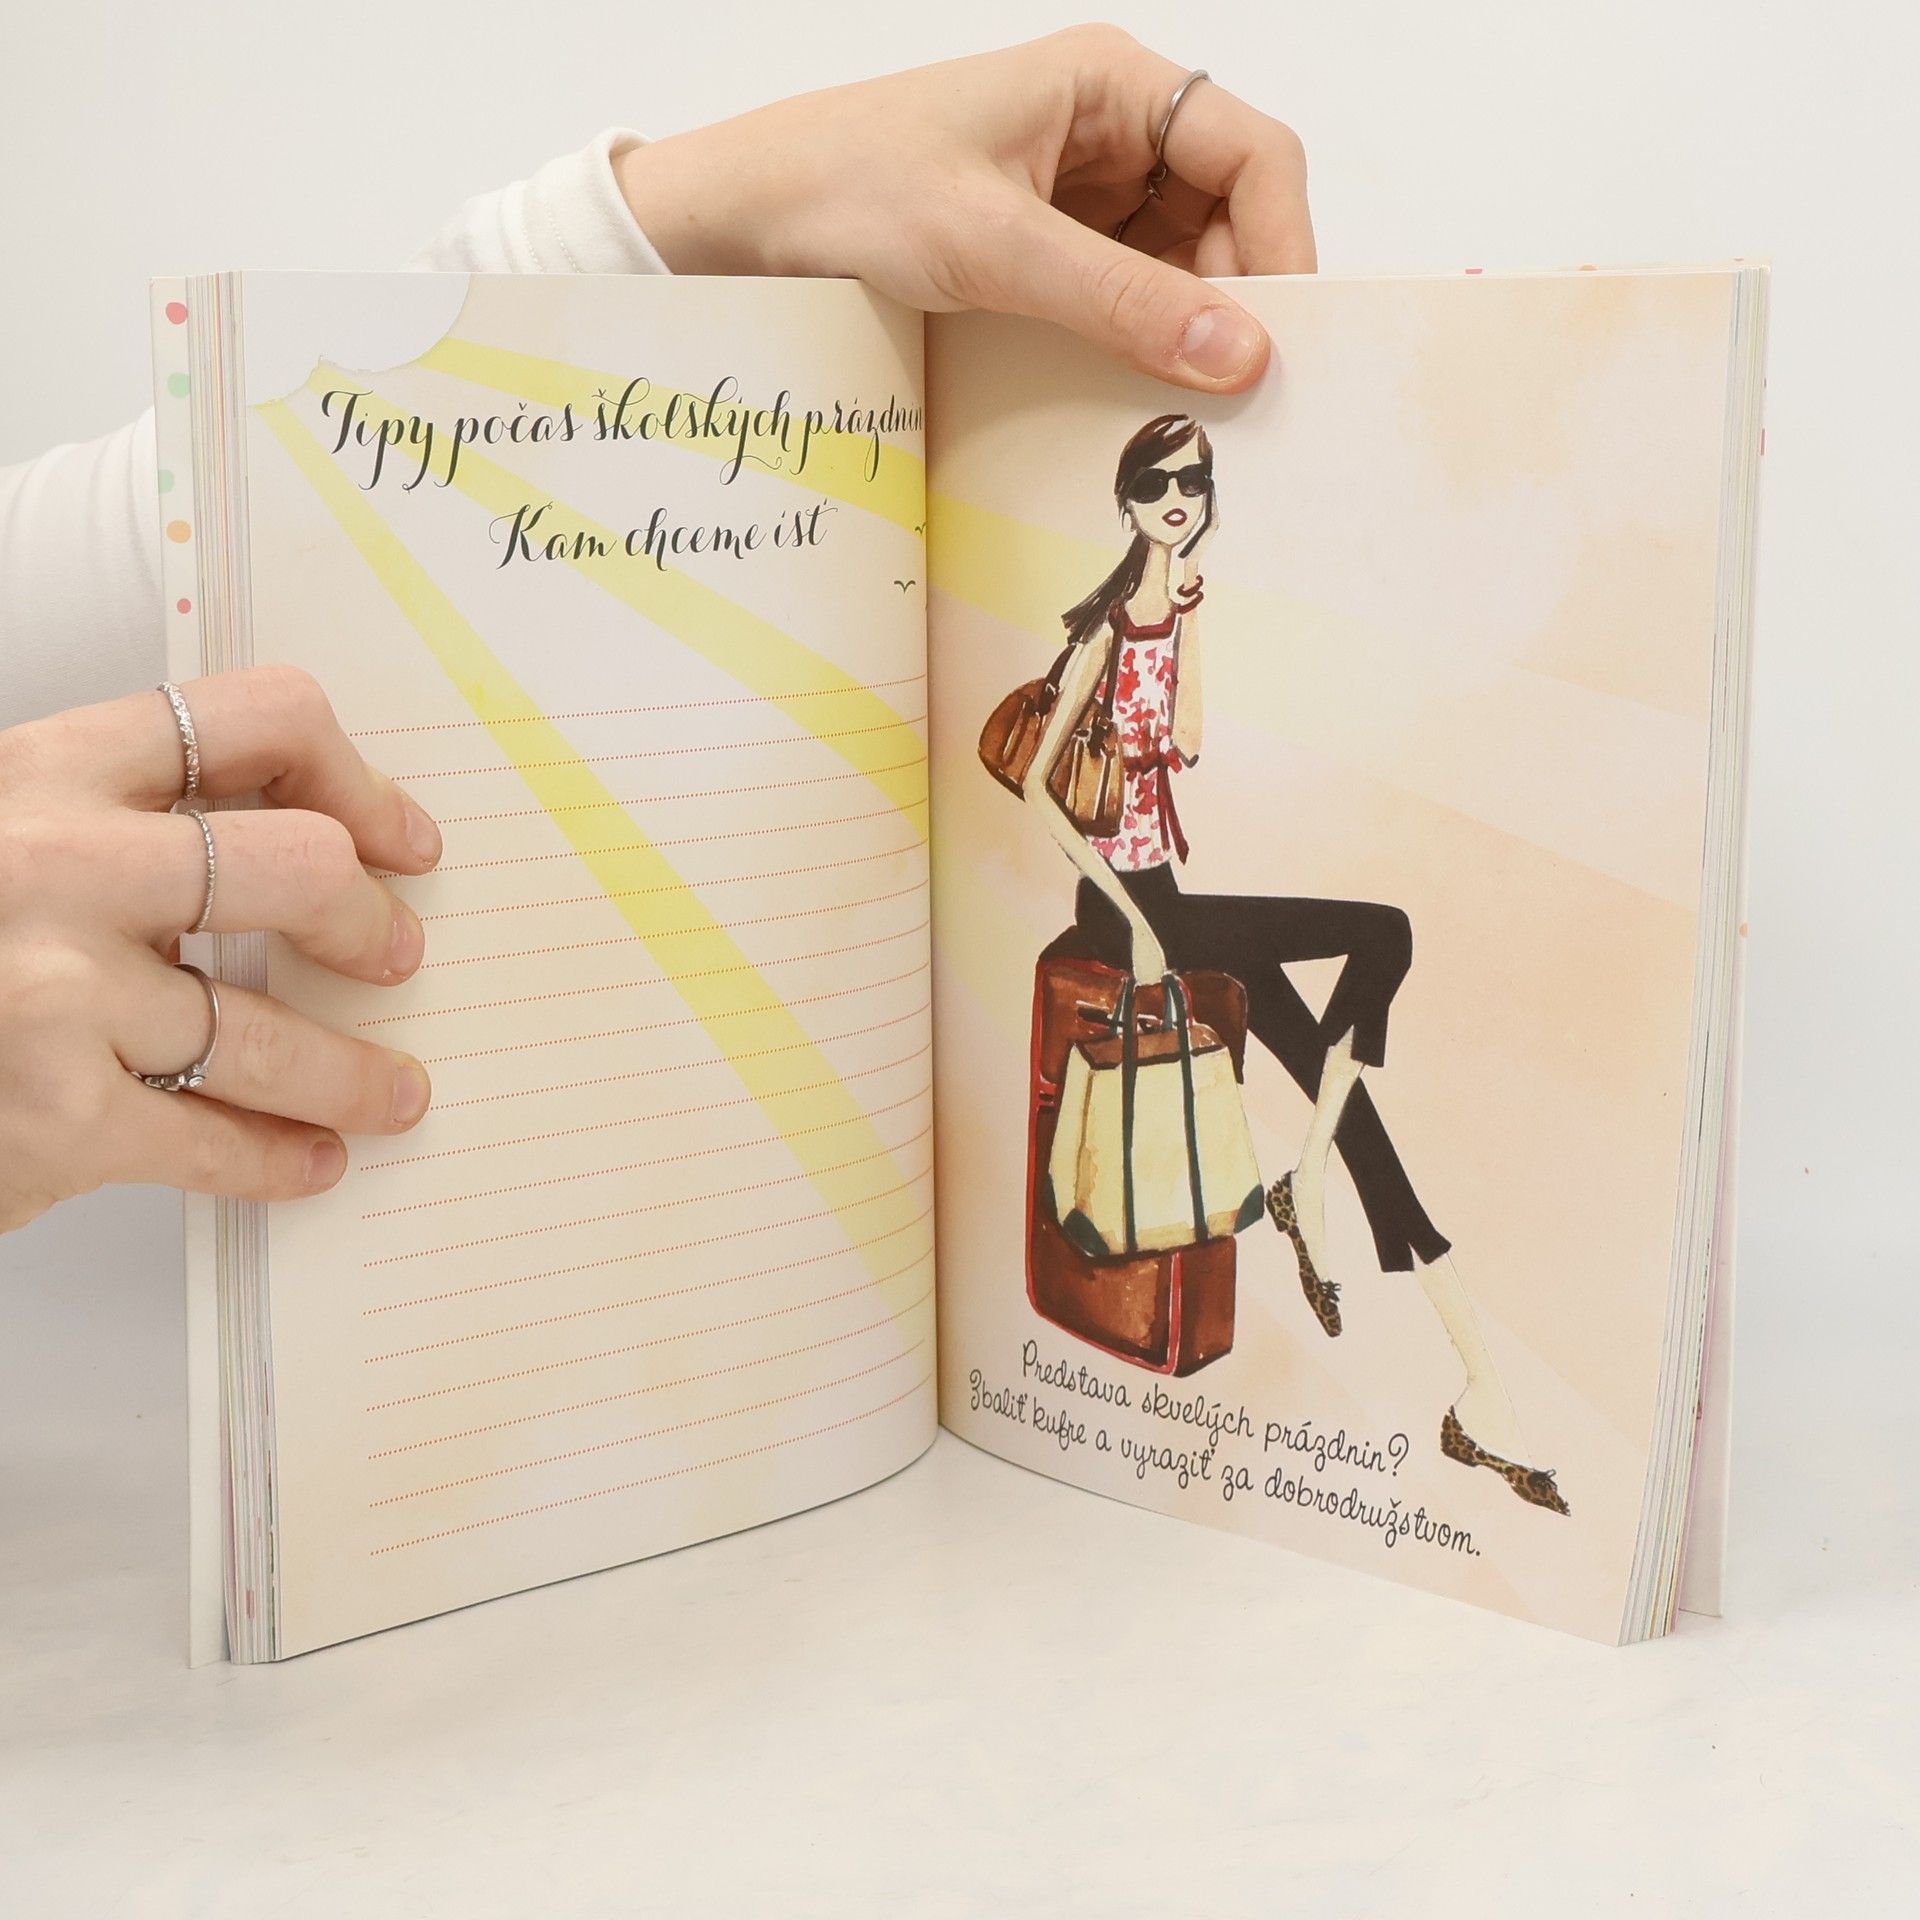 Tipy počas školských prázdnin
Kam chceme ísť
Predstava skvelých prázdnin?
Zbaliť kufre a vyraziť za dobrodružstvom.